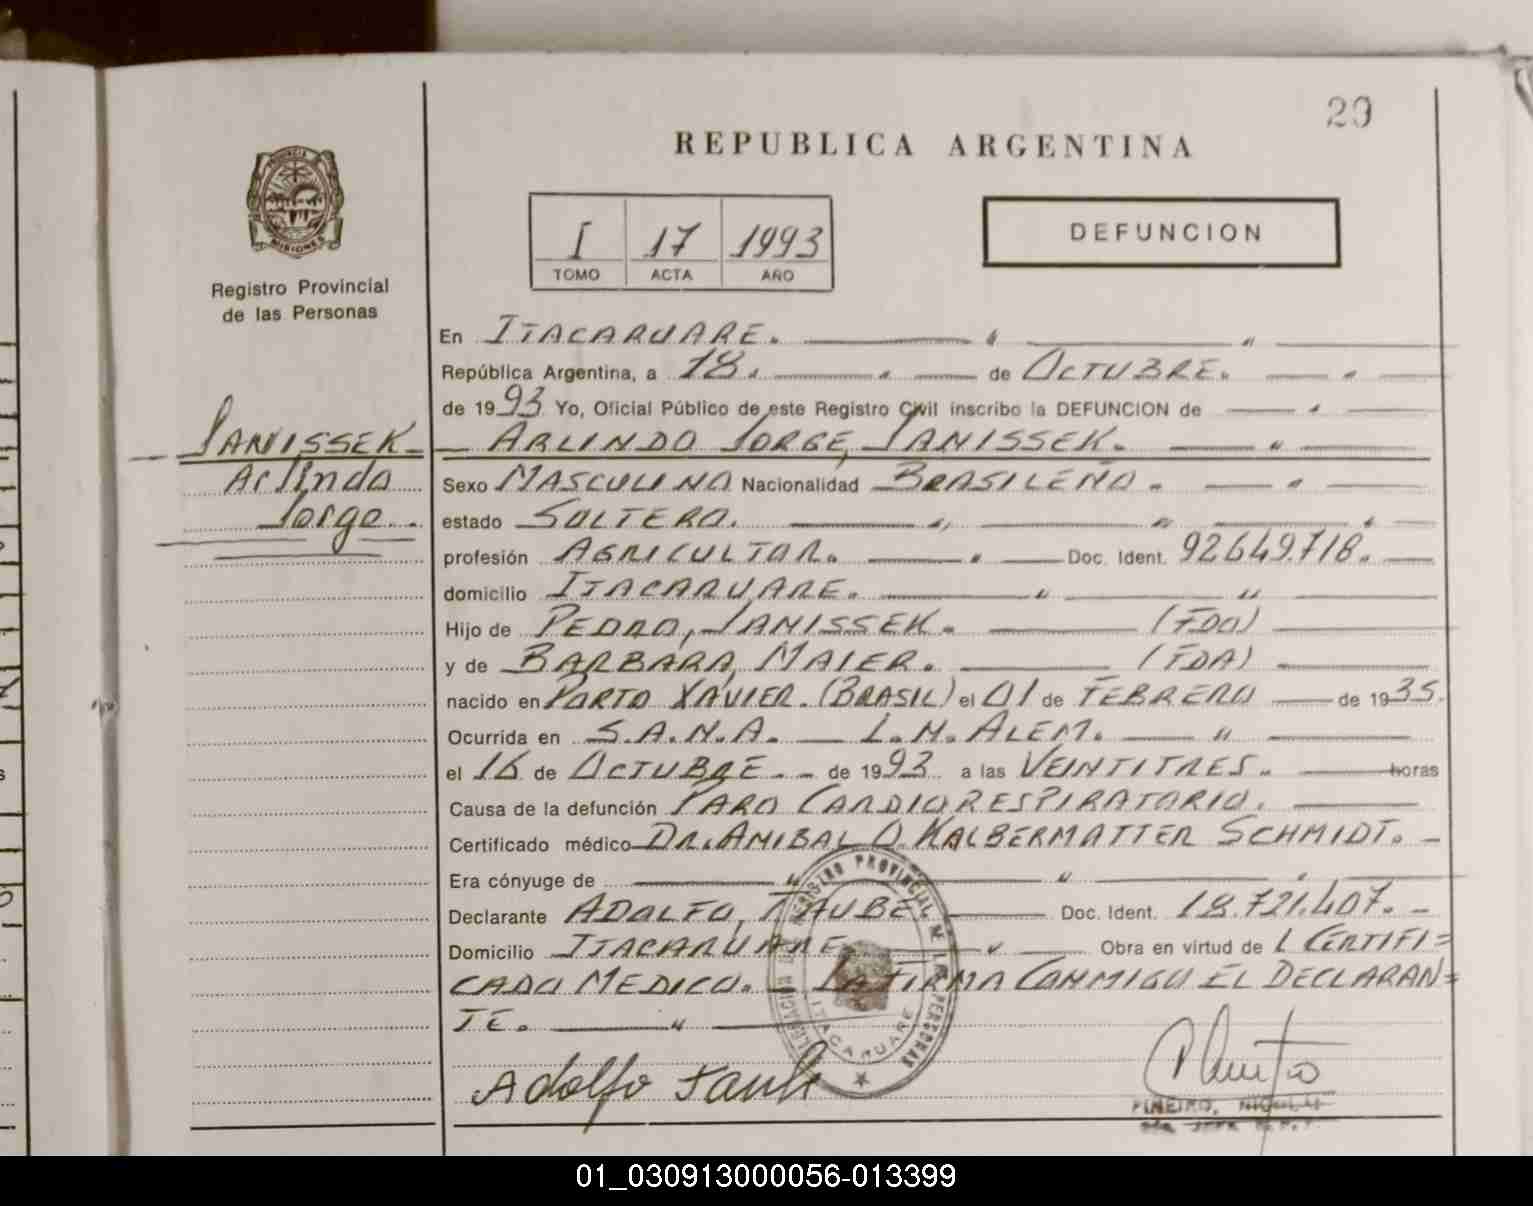 29
REPUBLICA ARGENTINA
PROVINCIA DE
MISIONES
Registro Provincial
de las Personas
I 17 1993
TOMO ACTA AÑO
DEFUNCION
En ITACARUARE.
República Argentina, a 18. de OCTUBRE.
de 1993 Yo, Oficial Público de este Registro Civil inscribo la DEFUNCION de
JANISSEK
Arlindo
Jorge.
ARLINDO JORGE, JANISSEK.
Sexo MASCULINO Nacionalidad BRASILEÑO.
estado SOLTERO.
profesión AGRICULTOR. Doc. Ident. 92649.718.
domicilio ITACARUARE.
Hijo de PEDRO, JANISSEK. (FDO)
y de BARBARA, MAIER. (FDA)
nacido en PORTO XAVIER. (BRASIL) el 01 de FEBRERO de 1935.
Ocurrida en S.A.N.A. L.N. ALEM.
el 16 de OCTUBRE. de 1993 a las VEINTITRES. horas
Causa de la defunción PARO CARDIORESPIRATORIO.
Certificado médico DR. ANIBAL O. KALBERMATTER SCHMIDT.
Era cónyuge de
Declarante ADOLFO, TAUBE Doc. Ident. 18.721.407.
Domicilio ITACARUARE Obra en virtud de L CERTIFI=
CADO MEDICO. LA FIRMA CONMIGO EL DECLARAN=
TE.
REGISTRO PROVINCIAL DE LAS PERSONAS
ITACARUARE
Adolfo Taube
PIÑEIRO,
01_030913000056-013399